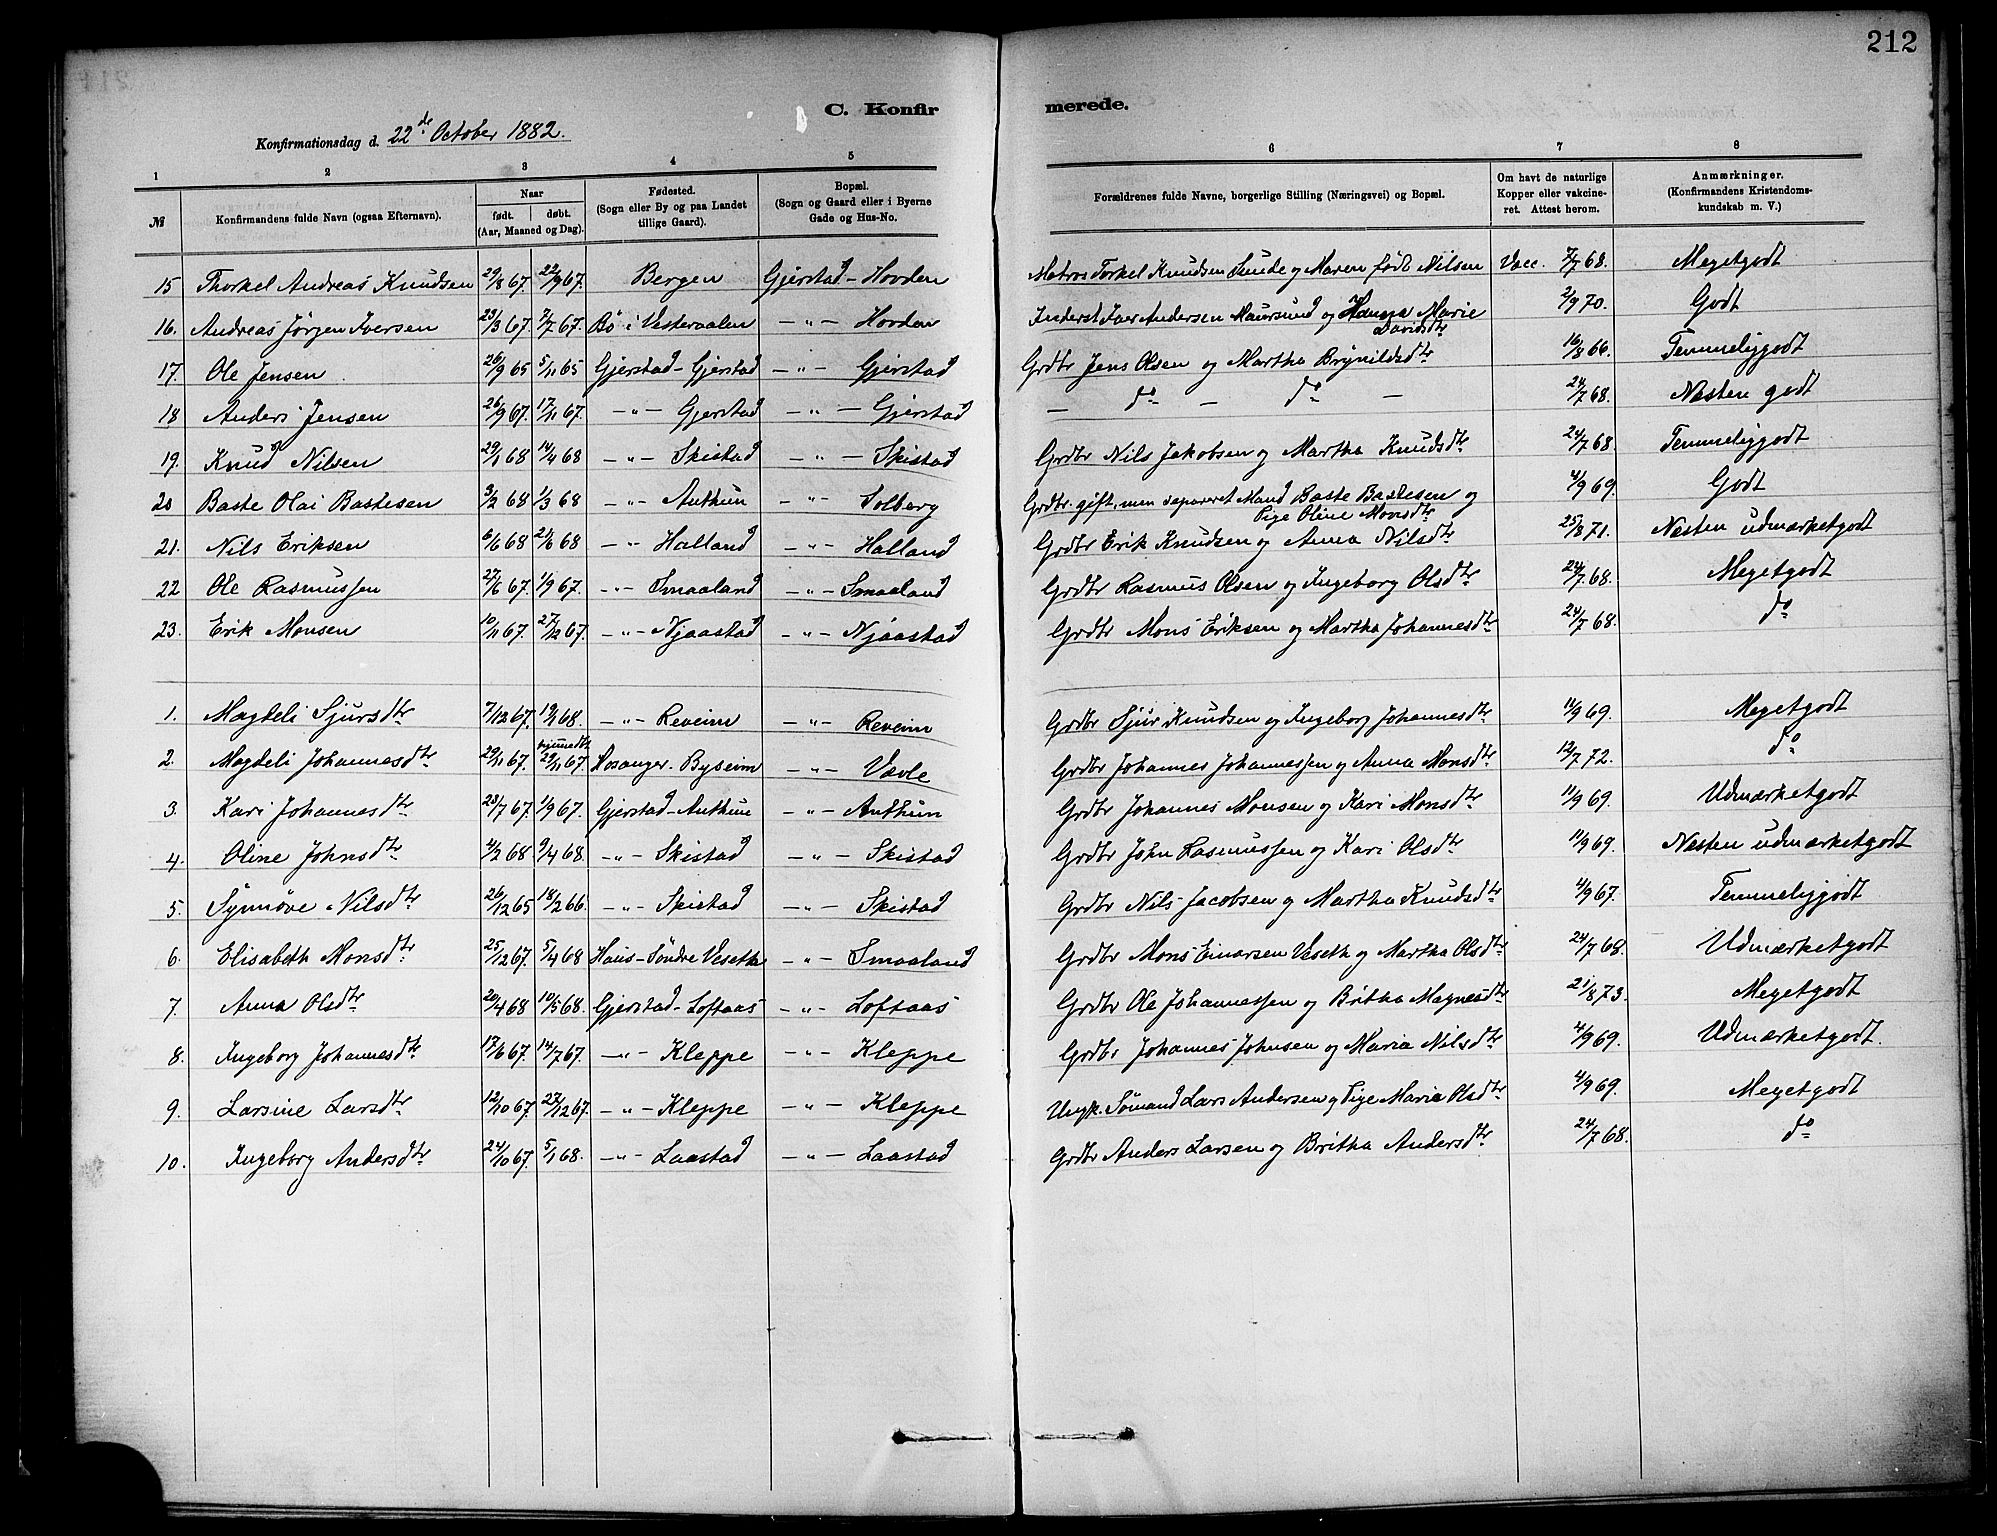 212
C. Konfir merede.
Konfirmationsdag d. 22de October 1882.
1 2 3 4 5 6 7 8
№ Konfirmandens fulde Navn (ogsaa Efternavn). Naar født. døbt. (Aar, Maaned og Dag). Fødested. (Sogn eller By og paa Landet tillige Gaard). Bopæl. (Sogn og Gaard eller i Byerne Gade og Hus-No. Forældrenes fulde Navne, borgerlige Stilling (Næringsvei) og Bopæl. Om havt de naturlige Kopper eller vakcineret. Attest herom. Anmærkninger. (Konfirmandens Kristendomskundskab m. V.)
15 Thorkel Andreas Knudsen 29/8 67. 22/9 67. Bergen Gjerstad - Hovden Matros Torkel Knudsen Sunde og Maren født Nilsen Vacc. 7/7 68. Megetgodt
16. Andreas Jørgen Iversen 23/3 67. 7/7 67. Bö i Vesteraalen -"- Hovden Inderst Iver Andersen Maursund og Hanna Marie Davidsdtr 2/9 70. Godt
17. Ole Jensen 26/9 65 5/11 65 Gjerstad - Gjerstad -"- Gjerstad Grdbr Jens Olsen og Martha Brynildsdtr 16/8 66. Temmeliggodt
18 Anders Jensen 26/9 67. 17/11 67. -"- Gjerstad -"- Gjerstad - do - do - 24/7 68. Næsten godt
19. Knud Nilsen 29/1 68 14/4 68 -"- Skistad -"- Skistad Grdbr Nils Jakobsen og Martha Knudsdtr 24/7 68. Temmeliggodt
20 Baste Olai Bastesen 3/2 68 1/3 68 -"- Anthun -"- Solberg Grdbr. gift, men separeret Mand Baste Bastesen og Pige Oline Monsdtr 4/9 69. Godt
21. Nils Eriksen 6/6 68 21/6 68 -"- Halland -"- Halland Grdbr Erik Knudsen og Anna Nilsdtr 25/8 71. Næsten udmærketgodt
22 Ole Rasmussen 27/6 67. 1/9 67. -"- Smaaland -"- Smaaland Grdbr Rasmus Olsen og Ingeborg Olsdtr 24/7 68. Megetgodt
23. Erik Monsen 10/11 67. 27/12 67. -"- Njaastad -"- Njaastad Grdbr Mons Eriksen og Martha Johannesdtr 24/7 68. do
1. Magdeli Sjursdtr 7/12 67. 19/1 68. -"- Reveim -"- Reveim Grdbr Sjur Knudsen og Ingeborg Johannesdtr 11/9 69. Megetgodt
2. Magdeli Johannesdtr 29/11 67. hjemmedbt 29/11 67. Hosanger - Byseim -"- Vavle Grdbr Johannes Johannessen og Anna Monsdtr 12/7 72. do
3. Kari Johannesdtr 23/7 67. 1/9 67. Gjerstad - Anthun -"- Anthun Grdbr Johannes Monsen og Kari Monsdtr 11/9 69. Udmærketgodt
4. Oline Johnsdtr 4/2 68 9/4 68. -"- Skistad -"- Skistad Grdbr John Rasmussen og Kari Olsdtr 11/9 69. Næsten udmærketgodt
5. Synnøve Nilsdtr 26/12 65 18/2 66. -"- Skistad -"- Skistad Grdbr Nils Jacobsen og Martha Knudsdtr 4/9 67. Temmeliggodt
6. Elisabeth Monsdtr 25/12 67. 5/4 68 Haus - Söndre Veseth -"- Smaaland Grdbr Mons Einarsen Veseth og Martha Olsdtr 24/7 68. Udmærketgodt
7. Anna Olsdtr 20/4 68 10/5 68. Gjerstad - Loftaas -"- Loftaas Grdbr Ole Johannessen og Britha Magnesdtr 21/8 73. Megetgodt
8. Ingeborg Johannesdtr 17/6 67. 14/7 67. -"- Kleppe -"- Kleppe Grdbr Johannes Johnsen og Maria Nilsdtr 4/9 69. Udmærketgodt.
9. Larsine Larsdtr 12/10 67. 27/12 67. -"- Kleppe -"- Kleppe Ungk. Sømand Lars Andersen og Pige Maria Olsdtr 4/9 69. Megetgodt
10. Ingeborg Andersdtr 24/10 67. 5/1 68. -"- Laastad -"- Laastad Grdbr Anders Larsen og Britha Andersdtr 24/7 68. do